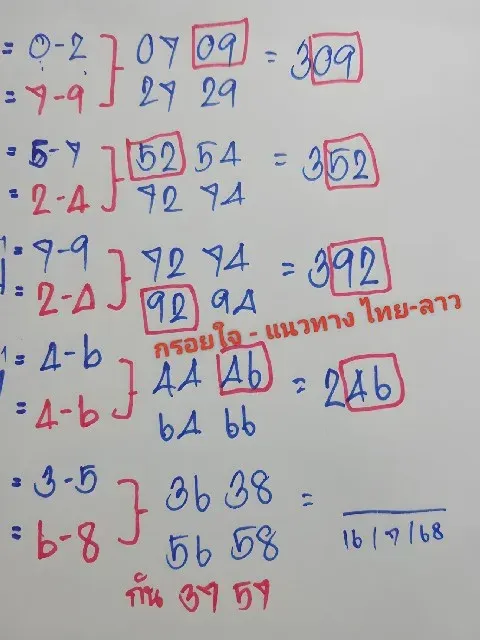 = 0-2 07 09 = 309
= 7-9 27 29
= 5-7 52 54 = 352
= 2-4 72 74
= 7-9 72 74 = 392
= 2-4 92 94
กรอยใจ - แนวทาง ไทย-ลาว
= 4-6 44 46 = 246
= 4-6 64 66
= 3-5 36 38 =
= 6-8 56 58 16/7/68
กัน 37 57